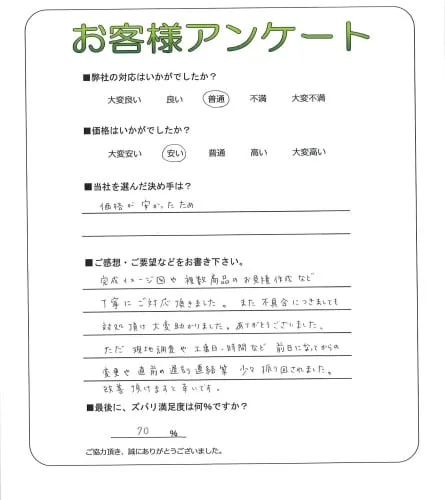 お客様アンケート
■弊社の対応はいかがでしたか？
大変良い 良い 普通 不満 大変不満
■価格はいかがでしたか？
大変安い 安い 普通 高い 大変高い
■当社を選んだ決め手は？
価格が安かったため
■ご感想・ご要望などをお書き下さい。
完成イメージ図や複数商品のお見積作成など
丁寧にご対応頂きました。また不具合につきましても
対処頂け大変助かりました。ありがとうございました。
ただ現地調査や工事日・時間など前日になってからの
変更や直前の遅刻連絡等少々振り回されました。
改善頂けますと幸いです。
■最後に、ズバリ満足度は何％ですか？
70 ％
ご協力頂き、誠にありがとうございました。